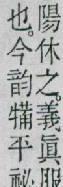 陽休之義眞服
也。今韵犕平祕